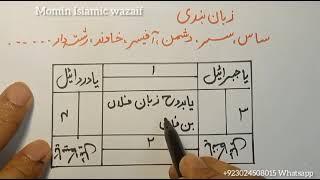 Momin Islamic wazaif
زبان بندی
ساس، سسر، دشمن، آفیسر، خاوند، رشتہ دار
یا جبرائیل
۱
یا دردائیل
۳
یا بدوح زبان فلاں
بن فلاں
۲
+923024508015 Whatsapp